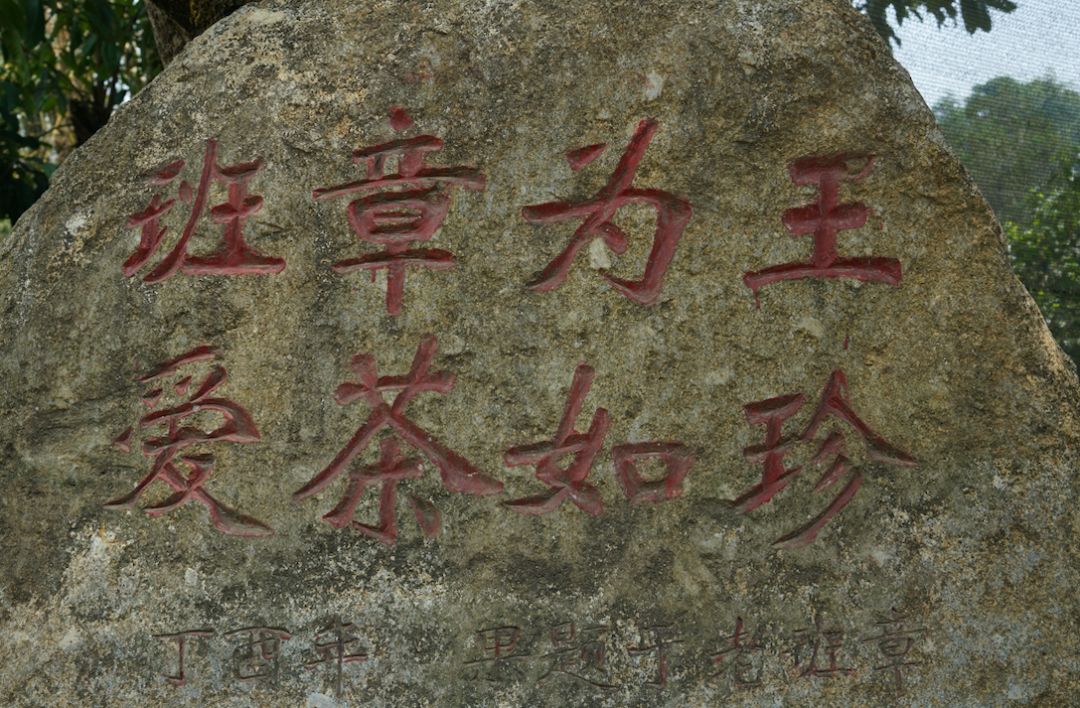 班章为王
爱茶如珍
丁酉年 墨题于老班章